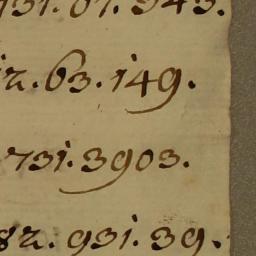 731.07.343.
12.63.149.
731.3903.
82.931.39.